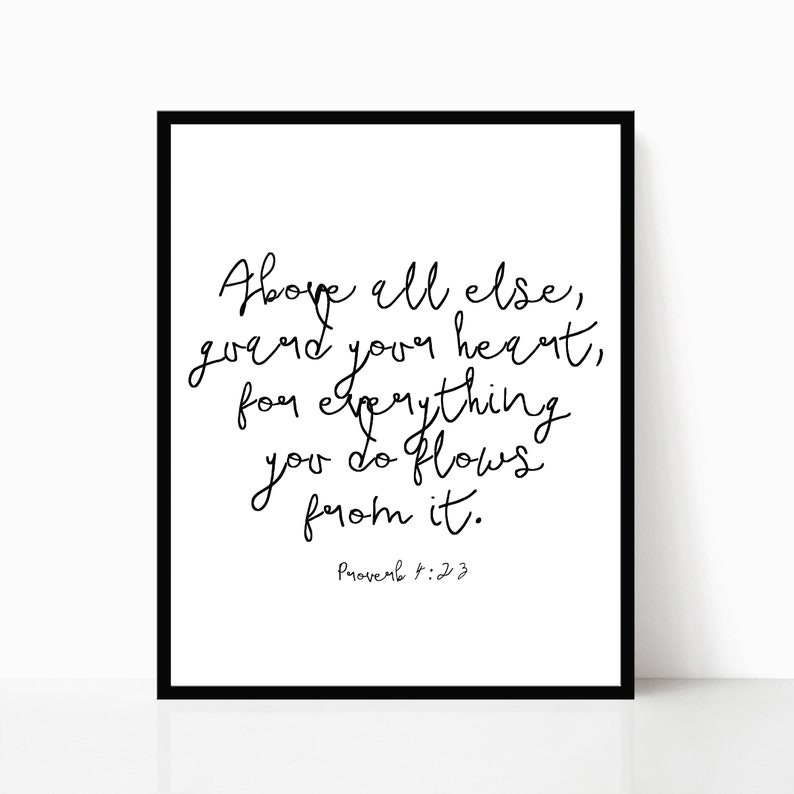 Above all else,
guard your heart,
for everything
you do flows
from it.
Proverb 4:23